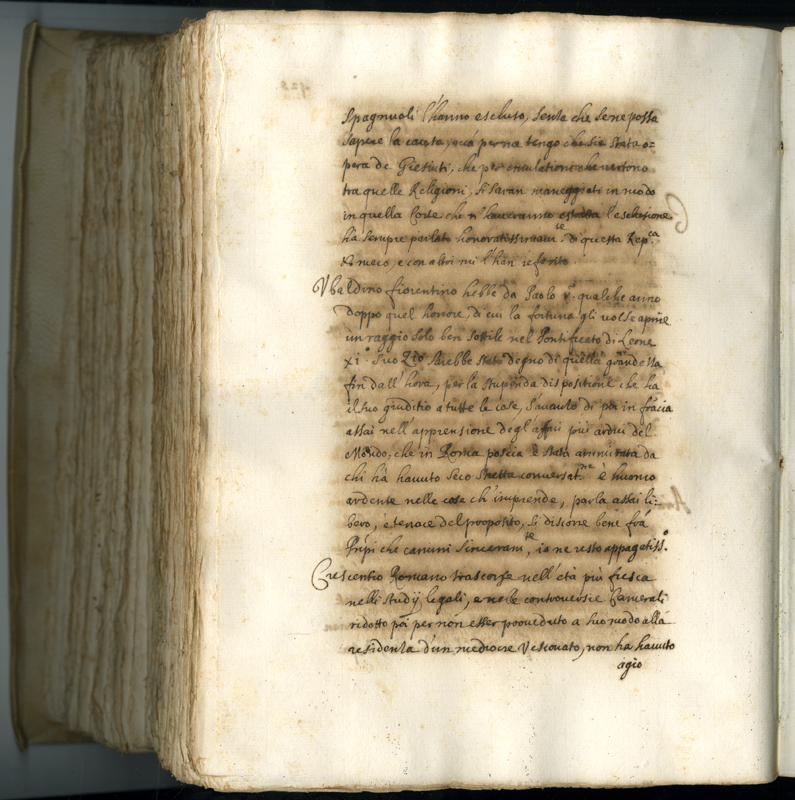 Spagnuoli l'hanno escluso, senza che se ne possa
sapere la causa, ma per me tengo che sia stata o=
pera de Giesuiti, che per emulationi che vertono
tra quelle Religioni, si saran maneggiati in modo
in quella Corte che n'haveranno l'esclusione
hà sempre parlato honoratissimam.te di questa Rep.ca
meco, e con altri mi l'han referito.
Ubaldino fiorentino hebbe da Paolo v.o qualche anno
doppo quel honore, di cui la fortuna gli volse aprire
un raggio solo ben sottile nel Pontificato di Leone
xi.o suo Zio sarebbe stato degno di quella grandezza
fin dall'hora, per la stupenda dispositione che ha
il suo giuditio a tutte le cose, s'avanzò di poi in fràcia
assai nell'apprensione degl'affari più ardui del
Mondo, che in Roma poscia è stata ammirata da
chi hà havuto seco stretta conversat.ne è huomo
ardente nelle cose ch'imprende, parla assai li=
bero, è tenace del proposito, si discorre bene frà
Prīpi che camini sinceram.te, io ne resto appagatiss.o
Crescentio Romano trascorse nell'età più fresca
nelli studij legali, e nelle controversie Camerali
ridotto poi per non esser proveduto a suo modo alla
residenza d'un mediocre Vescovato, non ha havuto
agio